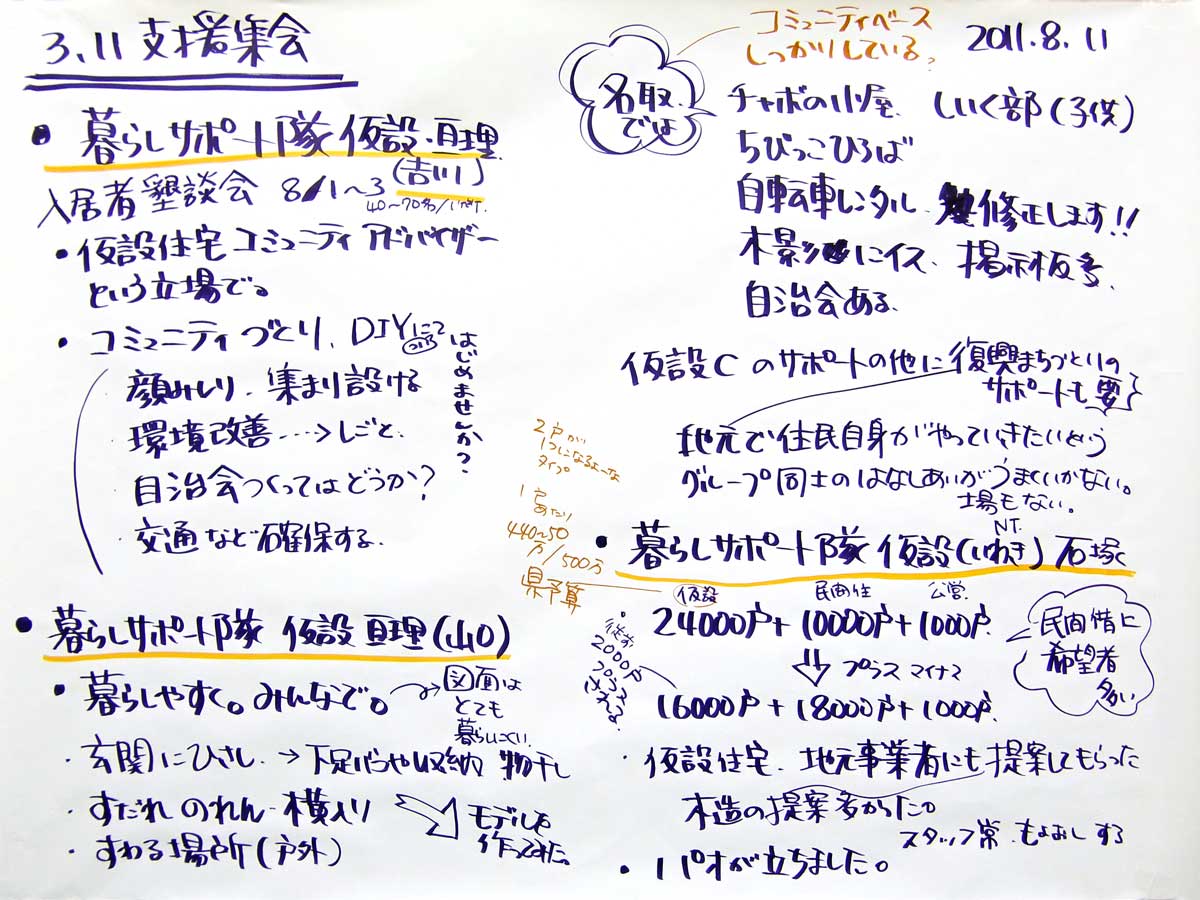 3.11 支援集会
・暮らしサポート隊 仮設・亘理
(吉川)
入居者懇談会 8/1〜3
40〜70名/
・仮設住宅コミュニティアドバイザー
という立場で。
・コミュニティづくり、DIY
はじめませんか?
・顔みしり・集まり設ける
・環境改善…→しごと、
・自治会つくってはどうか?
・交通など確保する。
・暮らしサポート隊 仮設 亘理(山口)
・暮らしやすく。みんなで。→図面は
とても
暮らしにくい
・玄関にひさし → 下足ばこや収納 物干し
・すだれ のれん 横入り
・すわる場所(戸外)
モデルを
作ってみた。
2011.8.11
コミュニティベース
しっかりしている?
名取
では
チャボの小屋、しいく部(子供)
ちびっこひろば
自転車レンタル、修正します!!
木影にイス、掲示板多、
自治会ある。
仮設Cのサポートの他に復興まちづくりの
サポートも要
地元で住民自身がやっていきたいという
グループ同士のはなしあいがうまくいかない。
場もない。
2戸が
1つになるよーな
タイプ
1戸
あたり
440〜50
万/500万
県予算
NT.
・暮らしサポート隊 仮設(いわき)石塚
仮設 民間住 公営
24000戸+10000戸+1000戸
プラス マイナス
2000戸
16000戸+18000戸+1000戸
民間借上
希望者
多い
・仮設住宅、地元事業者にも提案してもらった
木造の提案多かった。
スタッフ常
・パオが立ちました。